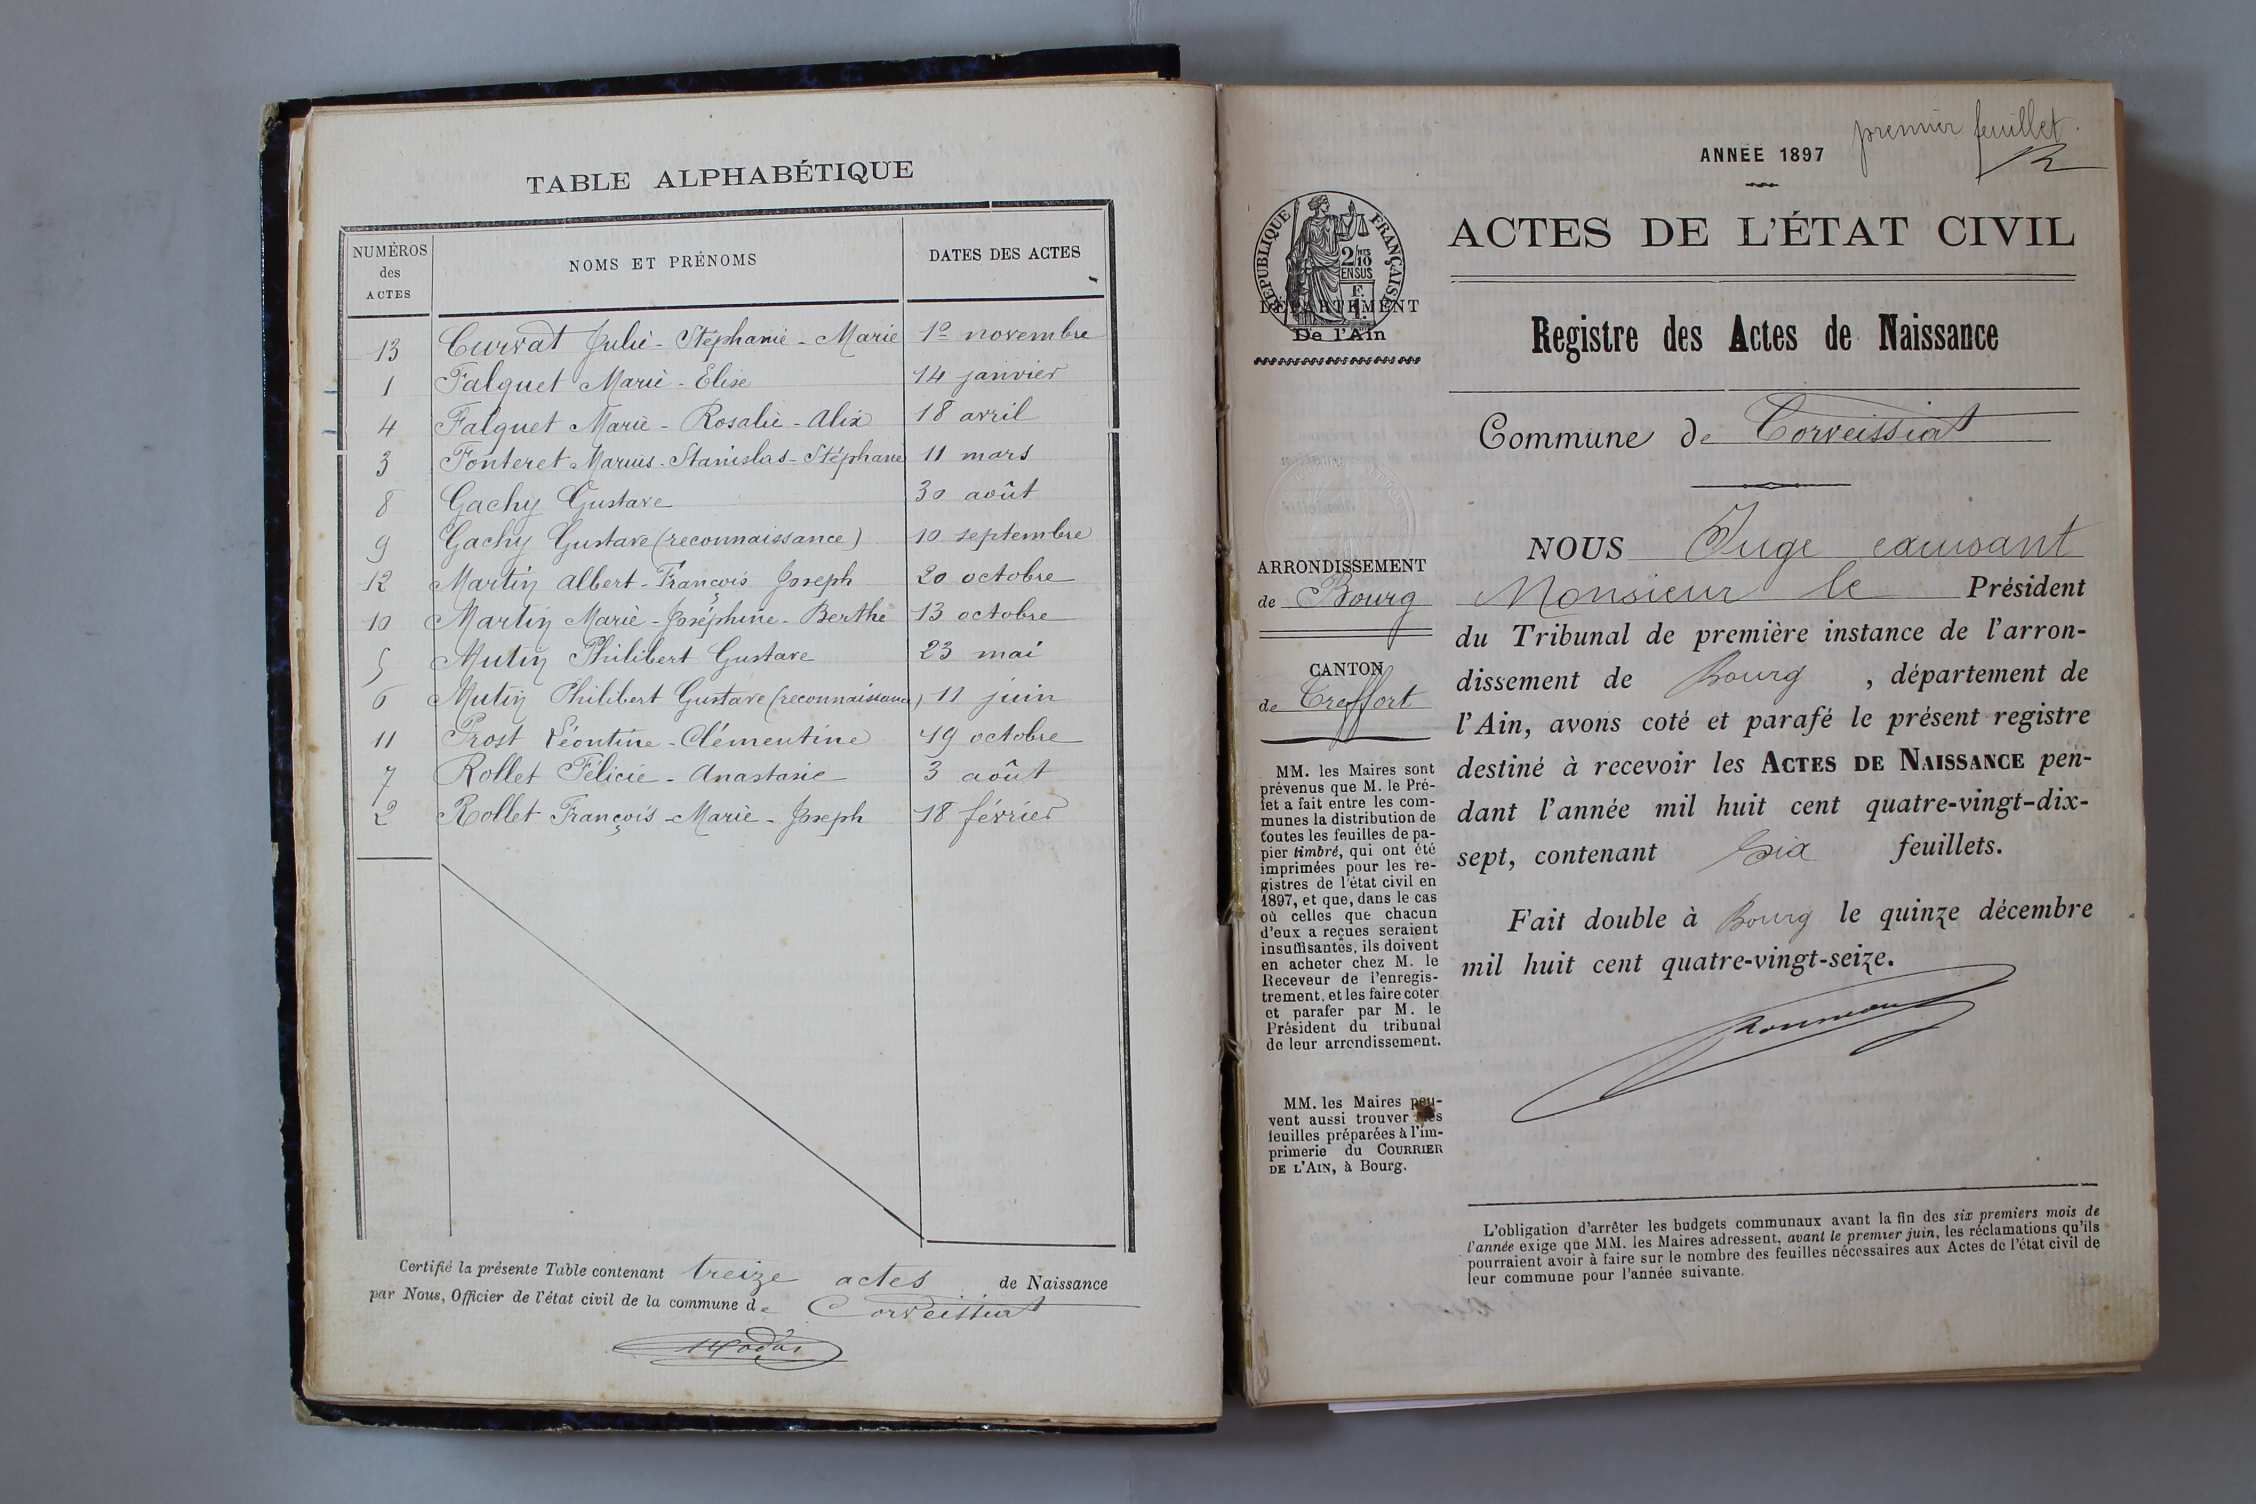 TABLE ALPHABÉTIQUE
NUMÉROS des ACTES NOMS ET PRÉNOMS DATES DES ACTES
13 Curvat Julie - Stéphanie - Marie 1o novembre
1 Falquet Marie - Elise 14 janvier
4 Falquet Marie - Rosalie - Alix 18 avril
3 Fonteret Marius - Stanislas - Stéphane 11 mars
8 Gachy Gustave 30 août
9 Gachy Gustave (reconnaissance) 10 septembre
12 Martin Albert - François Joseph 20 octobre
10 Martin Marie - Joséphine - Berthe 13 octobre
5 Mutin Philibert Gustave 23 mai
6 Mutin Philibert Gustave (reconnaissance) 11 juin
11 Prost Léontine - Clémentine 19 octobre
7 Rollet Félicie - Anastasie 3 août
2 Rollet François - Marie - Joseph 18 février
Certifié la présente Table contenant treize actes de Naissance
par Nous, Officier de l'état civil de la commune de Corveissiat
premier feuillet
ANNÉE 1897
RÉPUBLIQUE FRANÇAISE
2/10
EN SUS
F.
1.
DÉPARTEMENT
De l'Ain
ACTES DE L'ÉTAT CIVIL
Registre des Actes de Naissance
Commune de Corveissiat
ARRONDISSEMENT
de Bourg
CANTON
de Treffort
MM. les Maires sont
prévenus que M. le Pré-
fet a fait entre les com-
munes la distribution de
toutes les feuilles de pa-
pier timbré, qui ont été
imprimées pour les re-
gistres de l'état civil en
1897, et que, dans le cas
où celles que chacun
d'eux a reçues seraient
insuffisantes, ils doivent
en acheter chez M. le
Receveur de l'enregis-
trement, et les faire coter
et parafer par M. le
Président du tribunal
de leur arrondissement.
MM. les Maires peu-
vent aussi trouver des
feuilles préparées à l'im-
primerie du COURRIER
DE L'AIN, à Bourg.
NOUS Juge excusant
Monsieur le Président
du Tribunal de première instance de l'arron-
dissement de Bourg , département de
l'Ain, avons coté et parafé le présent registre
destiné à recevoir les ACTES DE NAISSANCE pen-
dant l'année mil huit cent quatre-vingt-dix-
sept, contenant Six feuillets.
Fait double à Bourg le quinze décembre
mil huit cent quatre-vingt-seize.
L'obligation d'arrêter les budgets communaux avant la fin des six premiers mois de
l'année exige que MM. les Maires adressent, avant le premier juin, les réclamations qu'ils
pourraient avoir à faire sur le nombre des feuilles nécessaires aux Actes de l'état civil de
leur commune pour l'année suivante.